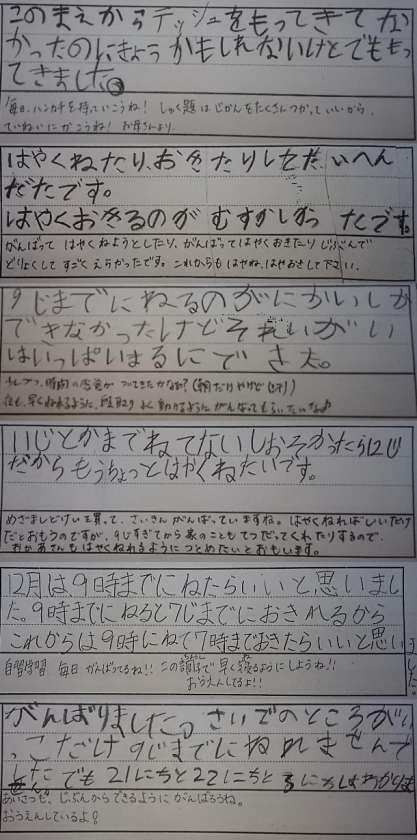 このまえからテッシュをもってきてな
かったのにきょうかもしれないけどでももっ
てきました。
毎日、ハンカチを持っていこうね! しゅく題はじかんをたくさんつかっていいから、
ていねいにかこうね! お母さんより
はやくねたり、おきたりしたたいへん
だたです。
はやくおきるのがむすかしかったです。
がんばってはやくねようとしたり、がんばってはやくおきたりじぶんで
どりょくしてすごくえらかったです。これからもはやね、はやおきして下さい。
9じまでにねるのがにかいしか
できなかったけどそれいがい
はいっぱいはるにでき太。
時間の感覚がついてきたかな?
早くねれるように、段取りよく動けるようにがんばってもらいたいな
いじとかまでねてないしおそかったら12じ
だからもうちょっとはやくねたいです。
めざましどけいを買って、さいきんがんばっていますね。はやくねればいいだけ
だとおもうのですが、9じすぎてから家のこともてつだってくれたりするので、
おかあさんもはやくねれるようにつとめたいとおもいます。
12月は、9時までにねたらいいと思いまし
た。9時までにねると7じまでにおきれるから
これからは9時にねて7時までおきたらいいと思い
ました
自習学習 毎日がんばってるね!! この調子で早く寝るようにしようね!!
おうえんしてるよ!!
がんばりましたっさいでのところがい
こだけ9じまでにねれませんで
した でも21にちと22にちと
あいさつも、じぶんからできるようにがんばろうね。
おうえんしているよ!